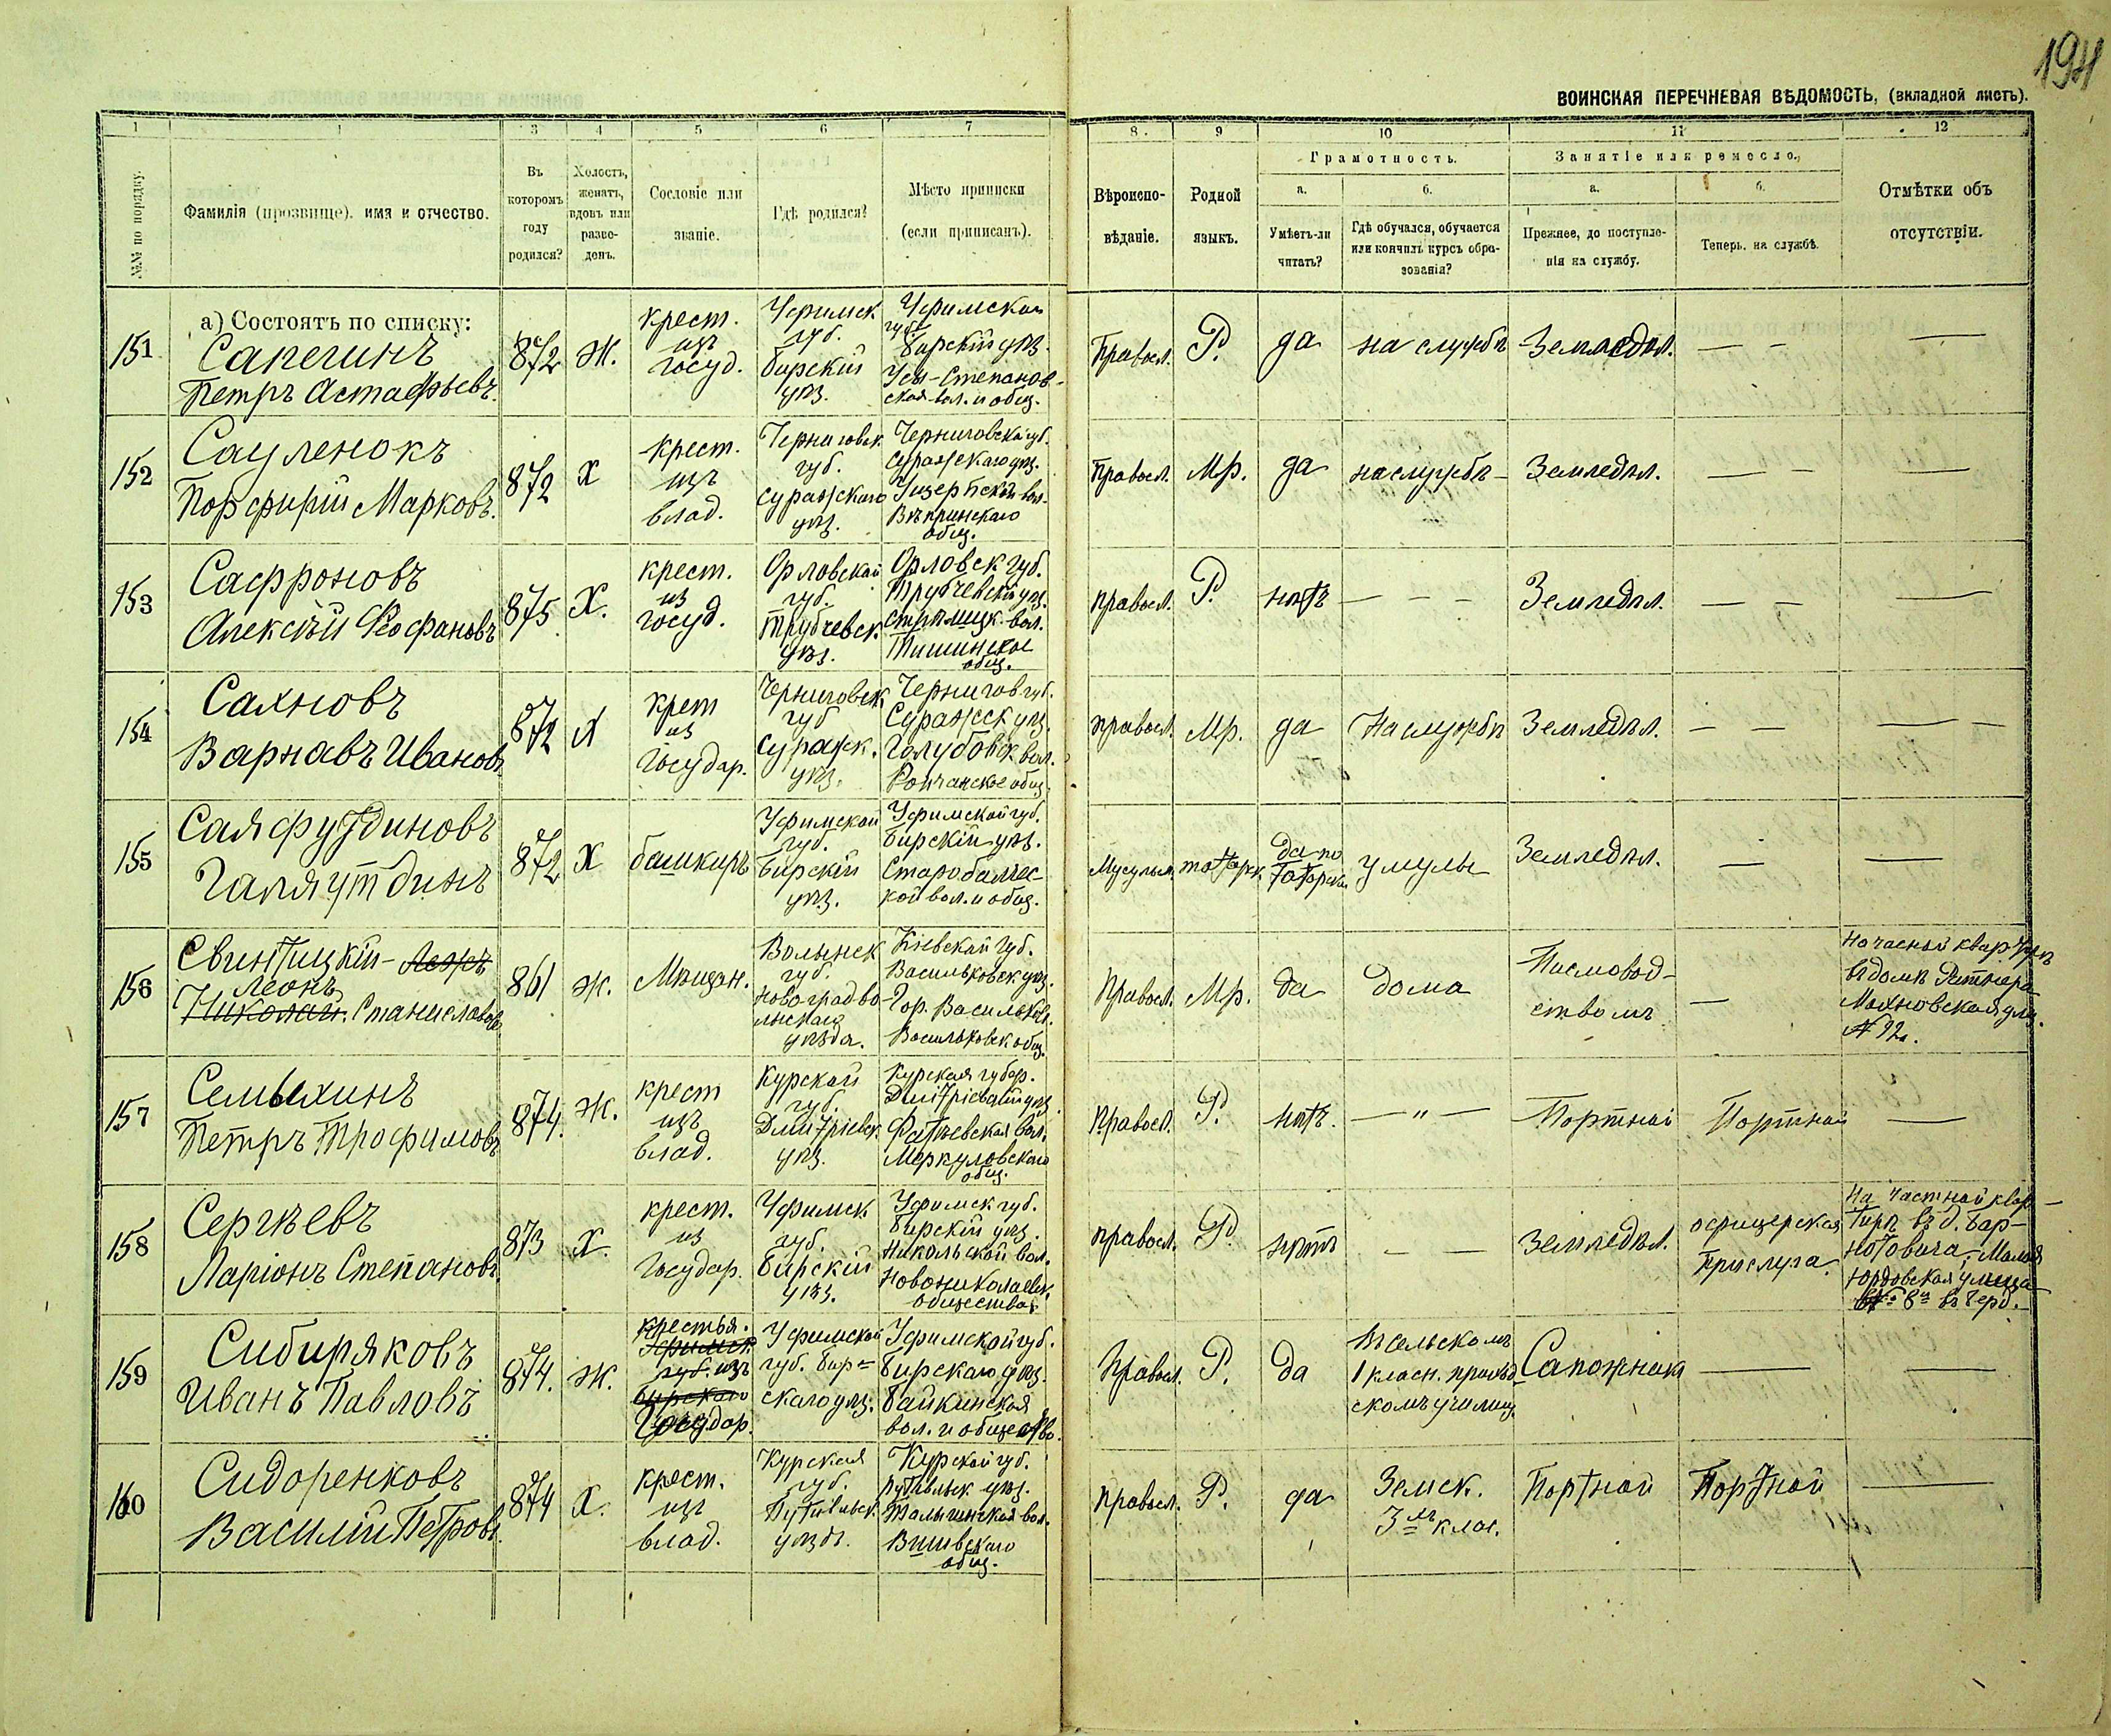 194
ВОИНСКАЯ ПЕРЕЧНЕВАЯ ВѢДОМОСТЬ, (вкладной листъ).
1 1 3 4 5 6 7 8. 9 10 11 12
№№ по порядку.
Фамилія (прозвище). имя и отчество.
Въ которомъ году родился?
Холостъ, женатъ, вдовъ или разве-денъ.
Сословіе или званіе.
Гдѣ родился?
Мѣсто приписки (если приписанъ).
Вѣроиспо-вѣданіе.
Родной языкъ.
Грамотность.
а. Умѣетъ-ли читать?
б. Гдѣ обучался, обучается или кончилъ курсъ обра-зованія?
Занятіе или ремесло.
а. Прежнее, до поступле-нія на службу.
б. Теперь. на службѣ.
Отмѣтки объ отсутствіи.
а) Состоятъ по списку:
151 Сапегинъ Петръ Астафьевъ. 872 Ж. крест. изъ госуд. Уфимск. губ. Бирскій уѣз. Уфимской губ. Бирскій уѣз. Усы-Степанов-ская вол. и общ. Правосл. Р. да на службѣ Земледѣл. — — —
152 Сауленокъ Порфирій Марковъ. 872 Х крест. изъ влад. Черниговск. губ. Суражскаго уѣз. Черниговской губ. Суражскаго уѣз. вол. общ. Правосл. Мр. да на службѣ - Земледѣл. — - —
153 Сафроновъ Алексѣй Феофановъ 875 Х. крест. из госуд. Орловской губ. Трубчевск. уѣз. Орловск губ. Трубчевскій уѣз. вол. общ. правосл. Р. нѣтъ — - - Земледѣл. — — —
154 Сахновъ Варнавъ Ивановъ 872 Х крест из Государ. Черниговск губ Суражск. уѣз. Чернигов губ. Суражск уѣз. Голубовск вол. общ. правосл. Мр. да На службѣ Земледѣл. — — — —
155 Саяфутдиновъ Галяутдинъ 872 Х башкиръ Уфимской губ. Бирскій уѣз. Уфимской губ. Бирскій уѣз. Старобалчес-кой вол. и общ. Мусульм. татарск. да по татарски у мулы Земледѣл. — —
156 Свинтицкій- Леонъ Николай. Станиславовъ 861 ж. Мѣщан. Волынск губ. Новоградво-лынскаго уѣзда. Кіевской губ. Васильковск уѣз. Гор. Васильковъ. Васильковск общ. Правосл. Мр. да дома — На часной квартирѣ въ домѣ Махновская ул. № 12.
157 Семыхинъ Петръ Трофимовъ 874. Ж. крест изъ влад. Курской губ. Дмитріевск. уѣз. Курская губер. Дмитріевскій уѣз. Фатѣевская вол. Меркуловскаго общ. Правосл. Р. нѣтъ. — " — Портной Портной —
158 Сергѣевъ Ларіонъ Степановъ 873 Х. крест. из Государ. Уфимск. губ. Бирскій уѣз. Уфимск губ. Бирскій уѣз. Никольской вол. Новониколаевск. общества. правосл. Р. нѣтъ - — Земледѣл. офицерская Прислуга. На частной квар-тирѣ въ д. Малая улица
159 Сибиряковъ Иванъ Павловъ 874. Ж. крестья. изъ Государ. Уфимской губ. Бир-скаго уѣз. Уфимской губ. Бирскаго уѣз. Байкинская вол. и общество. Правосл. Р. да Въ сельскомъ 1 класн. училищ. Сапожник — —
160 Сидоренковъ Василій Петровъ. 874 Х. крест. изъ влад. Курская губ. Путивльск. уѣздъ. Курской губ. Путивльск уѣз. вол. общ. правосл. Р. да Земск. 3 клас. Портной Портной —